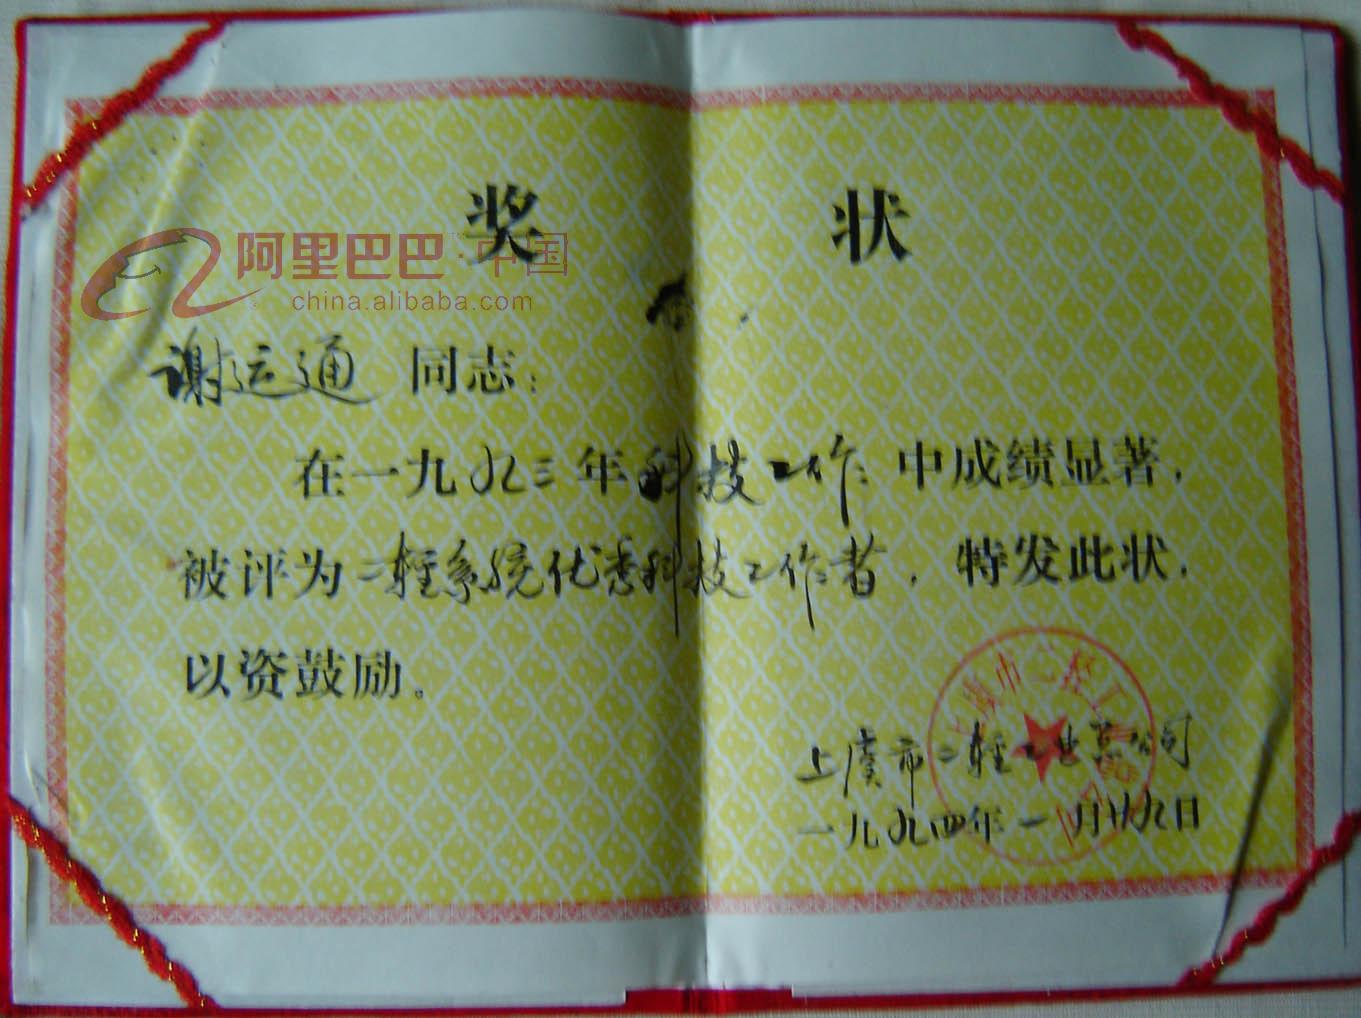 奖 状
阿里巴巴·中国
china.alibaba.com
谢运通 同志：
在一九九三年科技工作中成绩显著，
被评为二轻系统优秀科技工作者，特发此状，
以资鼓励。
上虞市二轻工业总公司
一九九四年一月廿九日